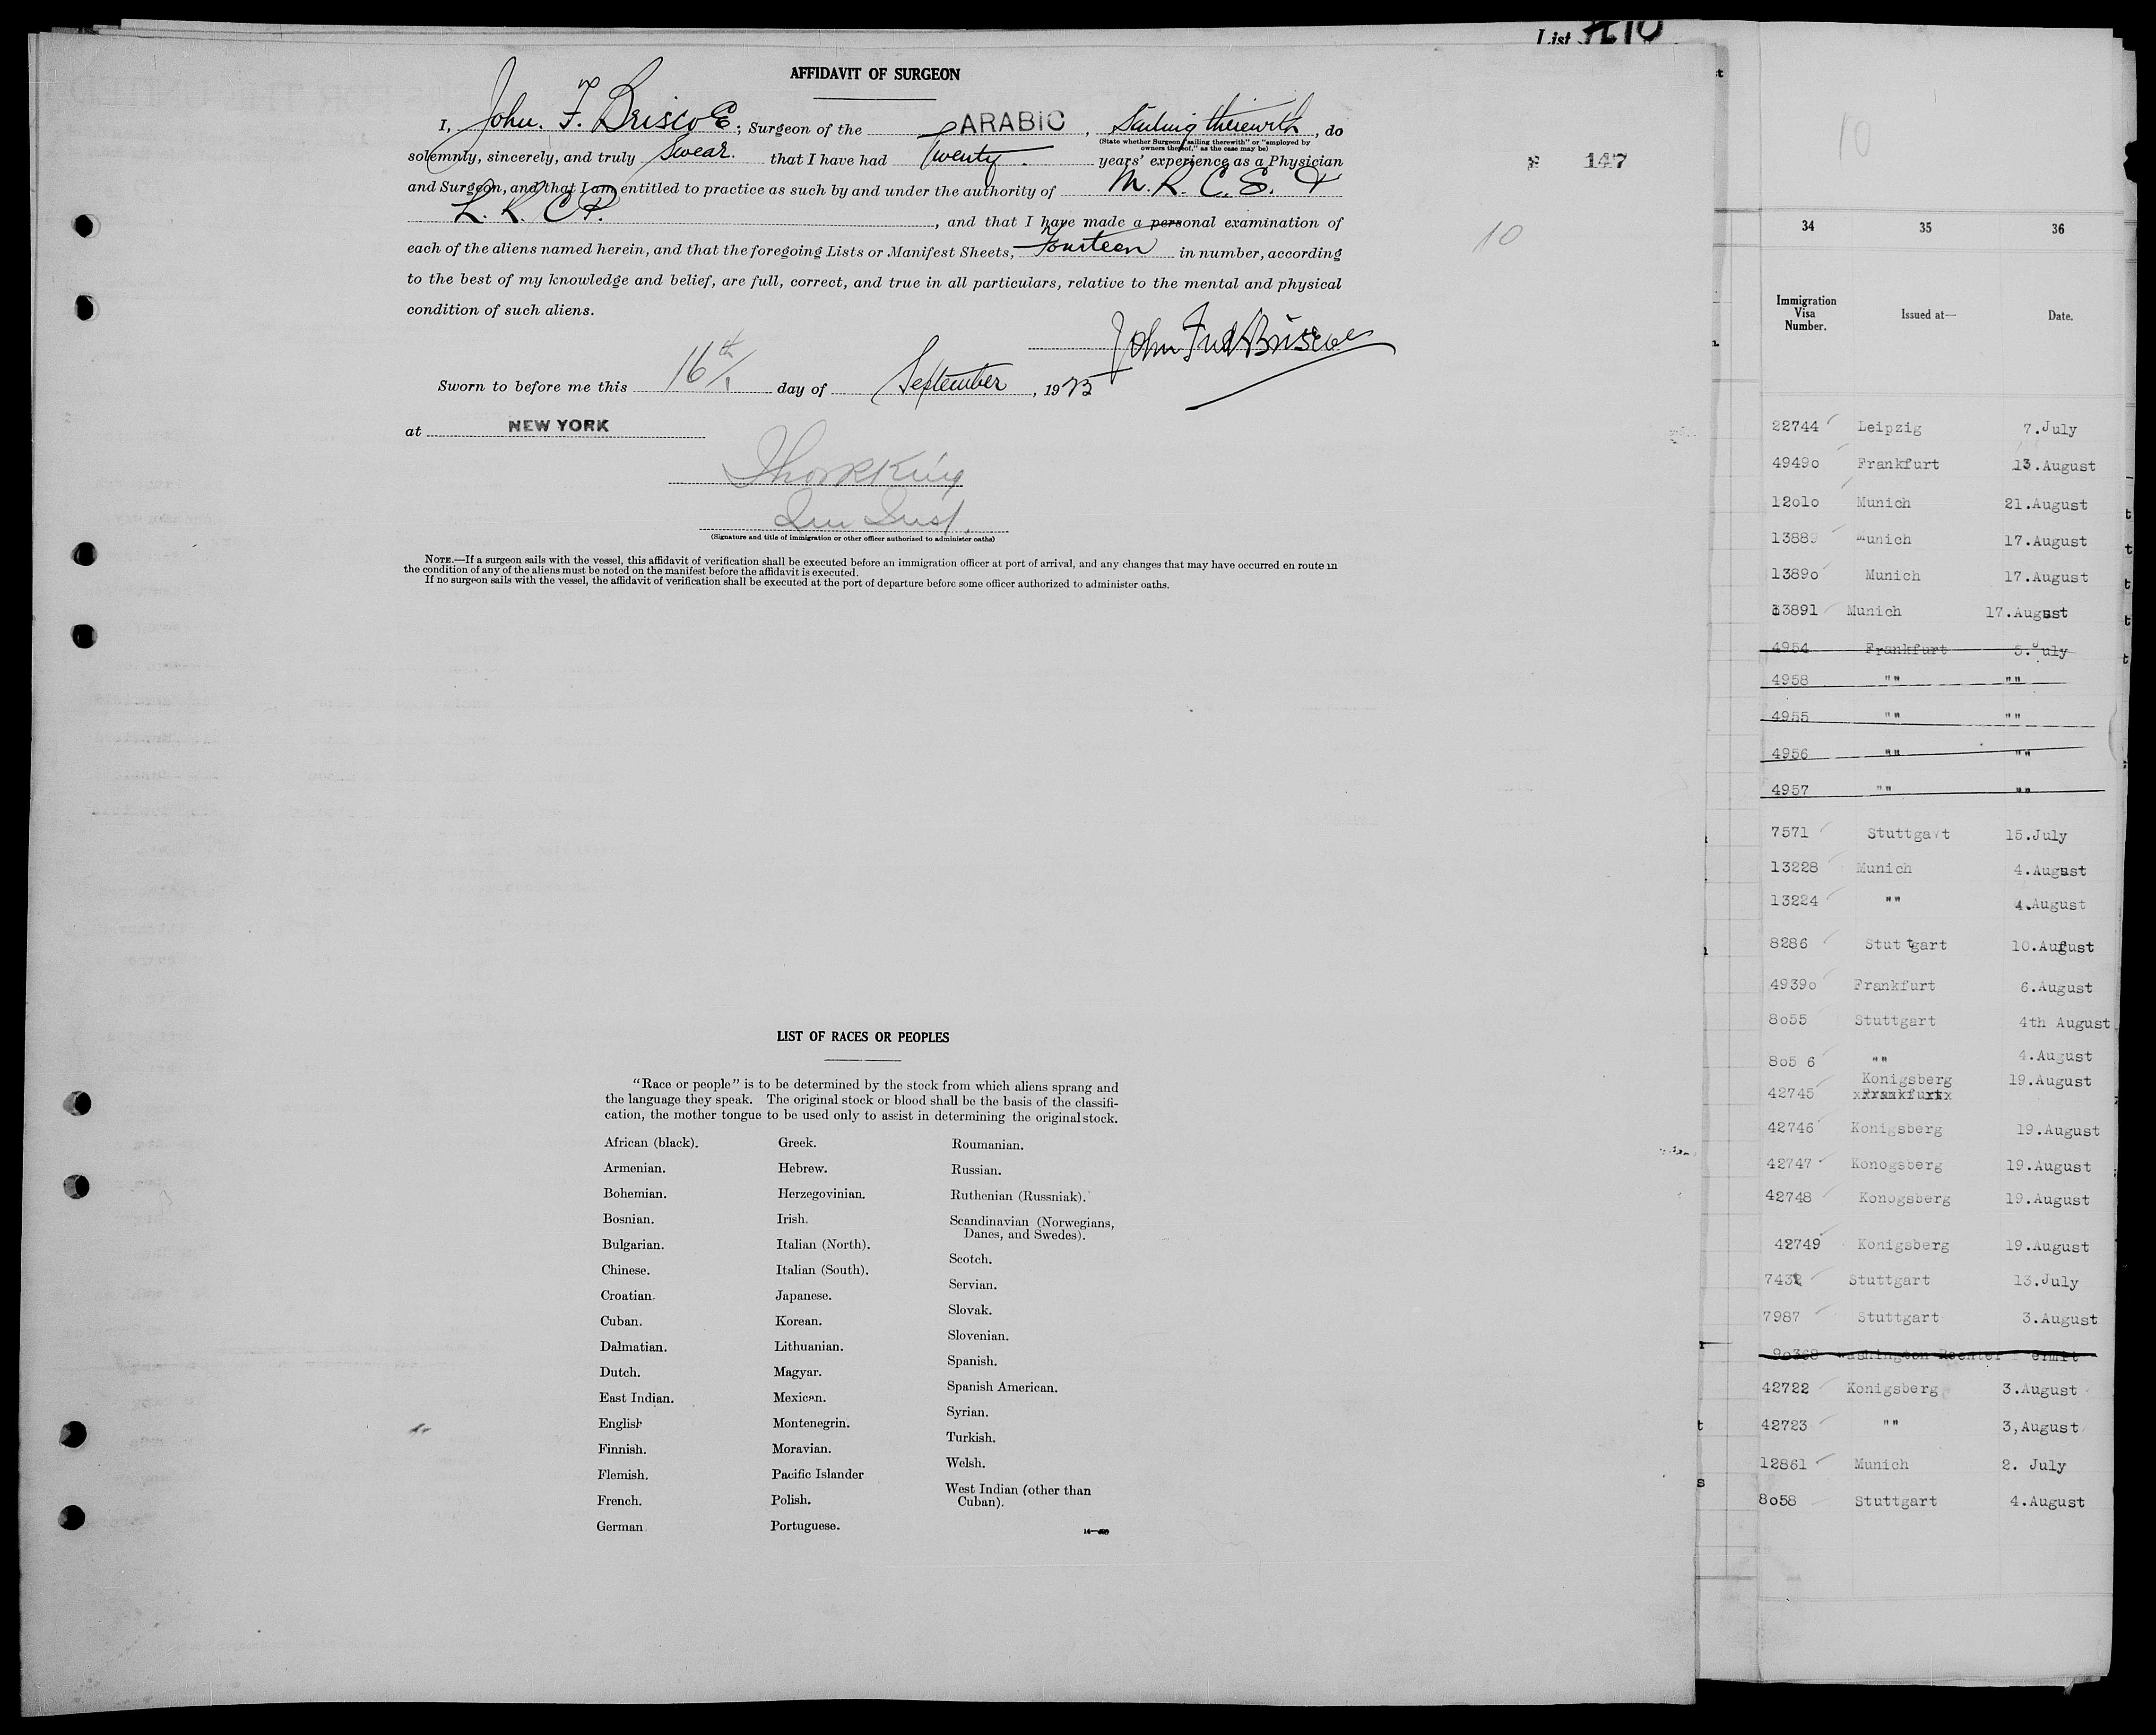 List 10
AFFIDAVIT OF SURGEON
I, John. F. Briscoe; Surgeon of the ARABIC, Sailing therewith, do
(State whether Surgeon "sailing therewith" or "employed by
owners thereof," as the case may be)
solemnly, sincerely, and truly Swear. that I have had Twenty. years' experience as a Physician
and Surgeon, and that I am entitled to practice as such by and under the authority of M. R. C. S. &
L. R. C. P. , and that I have made a personal examination of
each of the aliens named herein, and that the foregoing Lists or Manifest Sheets, Fourteen in number, according
to the best of my knowledge and belief, are full, correct, and true in all particulars, relative to the mental and physical
condition of such aliens.
John Fred Briscoe
Sworn to before me this 16th day of September, 1925
at NEW YORK
(Signature and title of immigration or other officer authorized to administer oaths)
NOTE.—If a surgeon sails with the vessel, this affidavit of verification shall be executed before an immigration officer at port of arrival, and any changes that may have occurred en route in
the condition of any of the aliens must be noted on the manifest before the affidavit is executed.
If no surgeon sails with the vessel, the affidavit of verification shall be executed at the port of departure before some officer authorized to administer oaths.
147
10
LIST OF RACES OR PEOPLES
"Race or people" is to be determined by the stock from which aliens sprang and
the language they speak. The original stock or blood shall be the basis of the classifi-
cation, the mother tongue to be used only to assist in determining the original stock.
African (black).
Armenian.
Bohemian.
Bosnian.
Bulgarian.
Chinese.
Croatian.
Cuban.
Dalmatian.
Dutch.
East Indian.
English
Finnish.
Flemish.
French.
German
Greek.
Hebrew.
Herzegovinian.
Irish.
Italian (North).
Italian (South).
Japanese.
Korean.
Lithuanian.
Magyar.
Mexican.
Montenegrin.
Moravian.
Pacific Islander
Polish.
Portuguese.
Roumanian.
Russian.
Ruthenian (Russniak).
Scandinavian (Norwegians,
Danes, and Swedes).
Scotch.
Servian.
Slovak.
Slovenian.
Spanish.
Spanish American.
Syrian.
Turkish.
Welsh.
West Indian (other than
Cuban).
10
34 35 36
Immigration Visa Number. Issued at— Date.
22744 Leipzig 7.July
4949o Frankfurt 13.August
12o1o Munich 21.August
13889 Munich 17.August
1389o Munich 17.August
13891 Munich 17.August
4954 Frankfurt 5.July
4958 "" ""
4955 "" ""
4956 "" ""
4957 "" ""
7571 Stuttgart 15.July
13228 Munich 4.August
13224 "" 4.August
8286 Stuttgart 10.August
4939o Frankfurt 6.August
8o55 Stuttgart 4th August
8o5 6 "" 4.August
Konigsberg 19.August
42745 xFrankfurtx
42746 Konigsberg 19.August
42747 Konogsberg 19.August
42748 Konogsberg 19.August
42749 Konigsberg 19.August
743 Stuttgart 13.July
7987 Stuttgart 3.August
9o368 Washington ermit
42722 Konigsberg 3.August
42723 "" 3,August
12861 Munich 2. July
8o58 Stuttgart 4.August